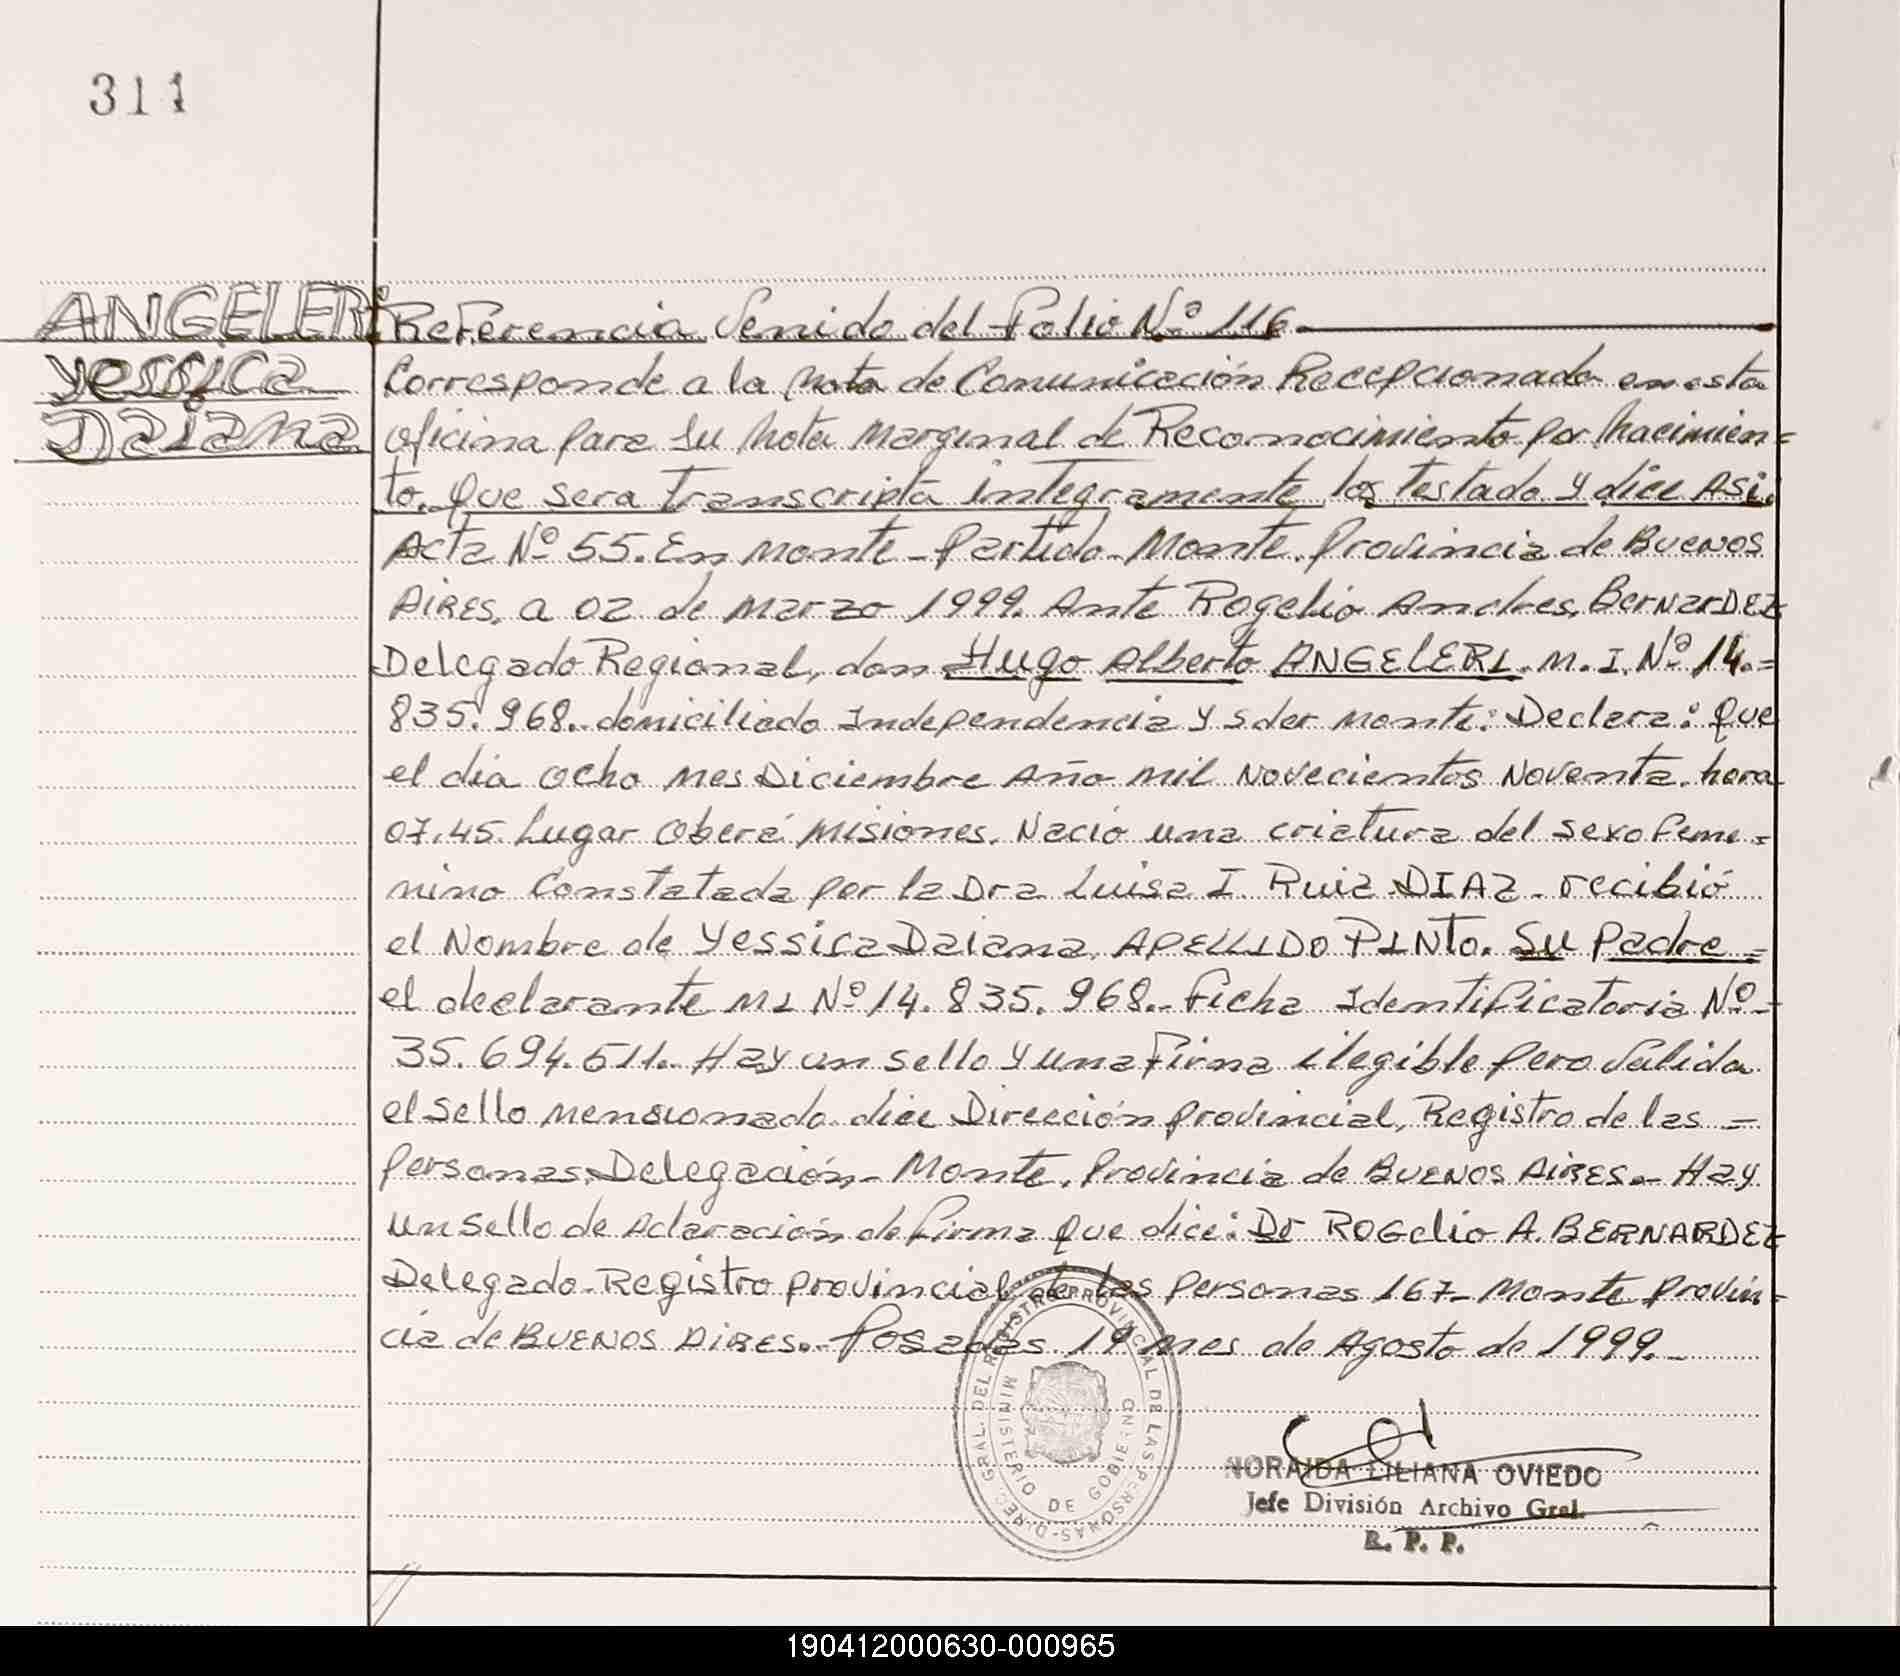 311
ANGELERI
Yessica
Daiana
Referencia Venido del Folio Nº 116.
Corresponde a la Nota de Comunicación Recepcionada en esta
oficina para su Nota Marginal de Reconocimiento por Nacimien=
to. Que sera Transcripta integramente los Testado y dice Asi.
Acta Nº 55. En Monte - Partido - Monte. Provincia de BUENOS
AIRES. a 02 de Marzo 1999. Ante Rogelio Andres. BernarDEZ
Delegado Regional, don Hugo Alberto ANGELERI. M. I. Nº 14.=
835.968. domiciliado Independencia y S der Monte: Declara: Que
el dia ocho mes Diciembre Año mil Novecientos Noventa. hora
07.45. Lugar Oberá Misiones. Nació una criatura del sexo feme=
nino Constatada por la Dra Luisa I. Ruiz DIAZ - recibió
el Nombre de Yessica Daiana. APELLIDO PINTO. Su Padre =
el declarante MI Nº 14. 835. 968.- Ficha Identificatoria Nº -
35.694.511.- Hay un sello y una Firma ilegible pero Valida
el sello mensionado dice Dirección provincial, Registro de las =
personas. Delegación - Monte. Provincia de BUENOS AIRES.- Hay
un sello de Aclaración de Firma Que dice: Dr ROGelio A. BERNARDEZ
Delegado - Registro provincial de las personas 167- Monte provin=
cia de BUENOS AIRES.- Posadas 19 mes de Agosto de 1999.-
DIREC. GRAL. DEL REGISTRO PROVINCIAL DE LAS PERSONAS-
MINISTERIO DE GOBIERNO
NORAIDA LILIANA OVIEDO
Jefe División Archivo Gral.
R. P. P.
190412000630-000965